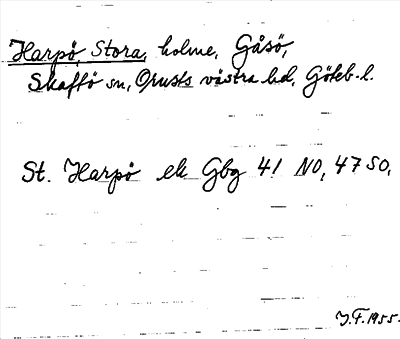 Harpö, Stora, holme, Gåsö,
Skaftö sn, Orusts västra hd, Göteb. l.
St. Harpö ek Gbg 41 NO, 47 SO,
J.F. 1955.